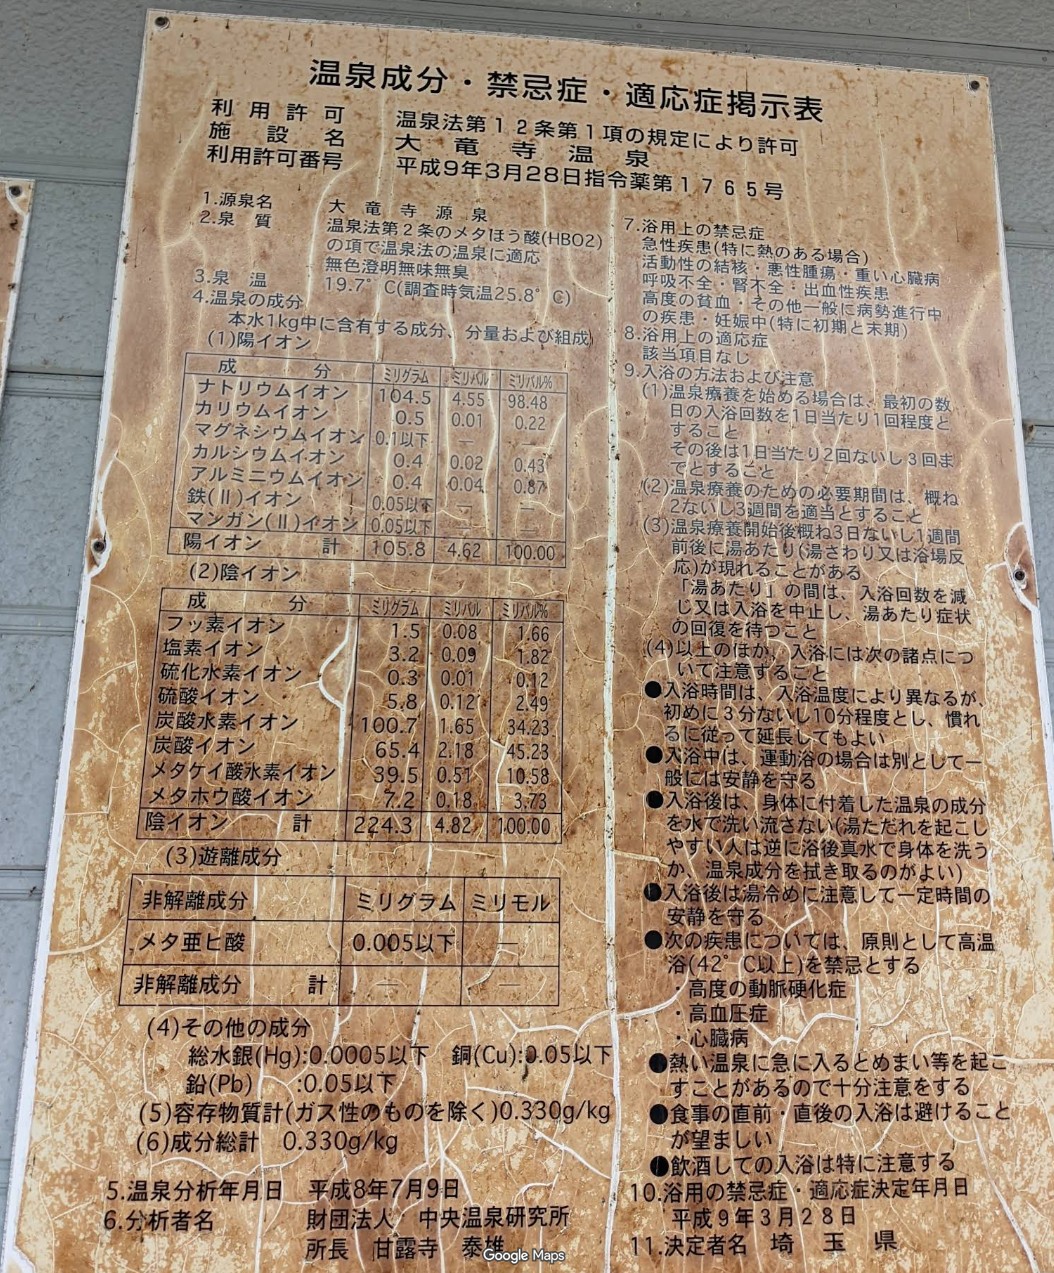 温泉成分・禁忌症・適応症掲示表
利用許可 温泉法第12条第1項の規定により許可
施設名 大竜寺温泉
利用許可番号 平成9年3月28日指令薬第1765号
1.源泉名 大竜寺源泉
2.泉質 温泉法第2条のメタほう酸(HBO2)
の項で温泉法の温泉に適応
無色澄明無味無臭
3.泉温 19.7°C(調査時気温25.8°C)
4.温泉の成分
本水1kg中に含有する成分、分量および組成)
(1)陽イオン
成分 ミリグラム ミリバル ミリバル%
ナトリウムイオン 104.5 4.55 98.48
カリウムイオン 0.5 0.01 0.22
マグネシウムイオン 0.1以下 — —
カルシウムイオン 0.4 0.02 0.43
アルミニウムイオン 0.4 0.04 0.87
鉄(II)イオン 0.05以下 — —
マンガン(II)イオン 0.05以下 — —
陽イオン計 105.8 4.62 100.00
(2)陰イオン
成分 ミリグラム ミリバル ミリバル%
フッ素イオン 1.5 0.08 1.66
塩素イオン 3.2 0.09 1.82
硫化水素イオン 0.3 0.01 0.12
硫酸イオン 5.8 0.12 2.49
炭酸水素イオン 100.7 1.65 34.23
炭酸イオン 65.4 2.18 45.23
メタケイ酸水素イオン 39.5 0.51 10.58
メタホウ酸イオン 7.2 0.18 3.73
陰イオン計 224.3 4.82 100.00
(3)遊離成分
非解離成分 ミリグラム ミリモル
メタ亜ヒ酸 0.005以下 —
非解離成分計 — —
(4)その他の成分
総水銀(Hg):0.0005以下 銅(Cu):0.05以下
鉛(Pb) :0.05以下
(5)容存物質計(ガス性のものを除く)0.330g/kg
(6)成分総計 0.330g/kg
5.温泉分析年月日 平成8年7月9日
6.分析者名 財団法人 中央温泉研究所
所長 甘露寺 泰雄
7.浴用上の禁忌症
急性疾患(特に熱のある場合)
活動性の結核・悪性腫瘍・重い心臓病
呼吸不全・腎不全・出血性疾患
高度の貧血・その他一般に病勢進行中
の疾患・妊娠中(特に初期と末期)
8.浴用上の適応症
該当項目なし
9.入浴の方法および注意
(1)温泉療養を始める場合は、最初の数
日の入浴回数を1日当たり1回程度と
すること
その後は1日当たり2回ないし3回ま
でとすること
(2)温泉療養のための必要期間は、概ね
2ないし3週間を適当とすること
(3)温泉療養開始後概ね3日ないし1週間
前後に湯あたり(湯さわり又は浴場反
応)が現れることがある
「湯あたり」の間は、入浴回数を減
じ又は入浴を中止し、湯あたり症状
の回復を待つこと
(4)以上のほか、入浴には次の諸点につ
いて注意すること
●入浴時間は、入浴温度により異なるが、
初めに3分ないし10分程度とし、慣れ
るに従って延長してもよい
●入浴中は、運動浴の場合は別として一
般には安静を守る
●入浴後は、身体に付着した温泉の成分
を水で洗い流さない(湯ただれを起こし
やすい人は逆に浴後真水で身体を洗う
か、温泉成分を拭き取るのがよい)
●入浴後は湯冷めに注意して一定時間の
安静を守る
●次の疾患については、原則として高温
浴(42°C以上)を禁忌とする
・高度の動脈硬化症
・高血圧症
・心臓病
●熱い温泉に急に入るとめまい等を起こ
すことがあるので十分注意をする
●食事の直前・直後の入浴は避けること
が望ましい
●飲酒しての入浴は特に注意する
10.浴用の禁忌症・適応症決定年月日
平成9年3月28日
11.決定者名 埼玉県
Google Maps